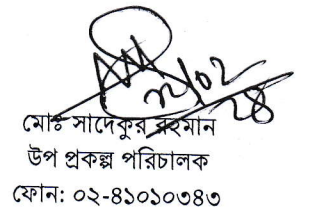 ২২/০২
২৪
মোঃ সাদেকুর রহমান
উপ প্রকল্প পরিচালক
ফোন: ০২-৪১০১০৩৪৩